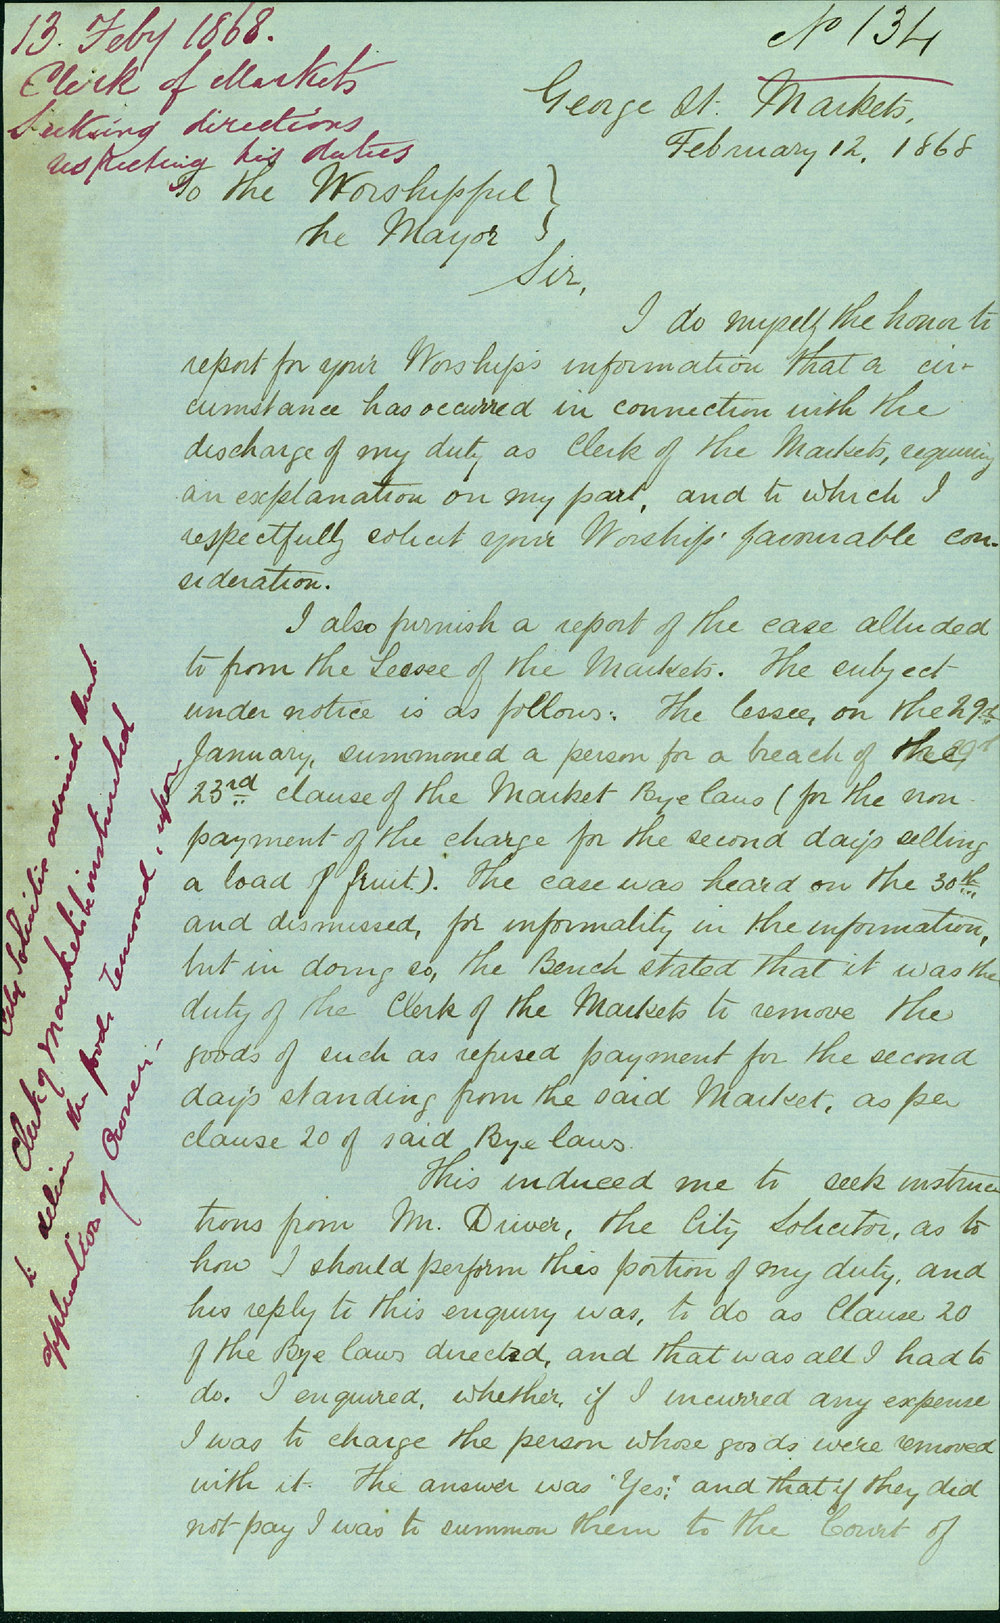 13. Feby 1868.
Clerk of Markets
Seeking directions
respecting his duties
No 134
George St. Markets,
February 12, 1868
To the Worshipful
the Mayor
Sir,
I do myself the honor to
report for your Worship's information that a cir-
cumstance has occurred in connection with the
discharge of my duty as Clerk of the Markets, requiring
an explanation on my part, and to which I
respectfully solicit your Worship's favourable con-
sideration.
I also furnish a report of the case alluded
to from the Lessee of the Markets. The subject
under notice is as follows: The lessee, on the 29th
January, summoned a person for a breach of the
23rd clause of the Market Bye laws (for the non
payment of the charge for the second day's selling
a load of fruit). The case was heard on the 30th,
and dismissed, for informality in the information,
but in doing so, the Bench stated that it was the
duty of the Clerk of the Markets to remove the
goods of such as refused payment for the second
day's standing from the said Market, as per
clause 20 of said Bye laws.
This induced me to seek instruc
tions from Mr. Driver, the City Solicitor, as to
how I should perform this portion of my duty, and
his reply to this enquiry was, to do as Clause 20
of the Bye laws directed, and that was all I had to
do. I enquired, whether, if I incurred any expense
I was to charge the person whose goods were removed
with it. The answer was "Yes;" and that if they did
not pay I was to summon them to the Court of
City Solicitor that
Clerk of Markets be instructed
to deliver the goods removed, upon
application of Owner.-